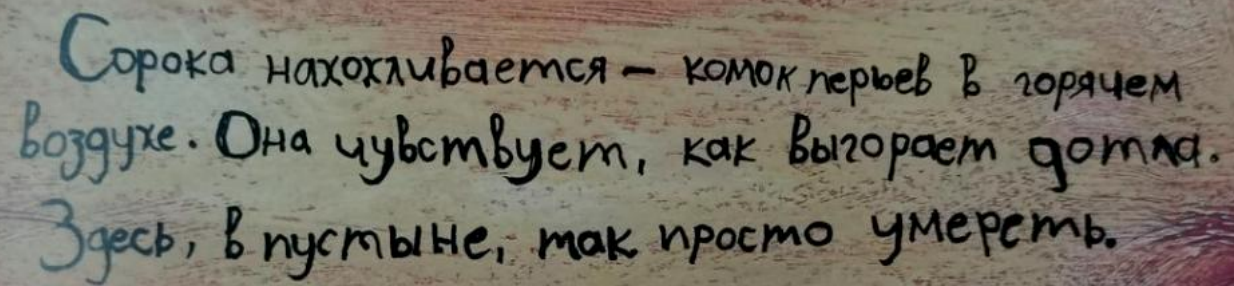 Сорока нахохливается – комок перьев в горячем
воздухе. Она чувствует, как выгорает дотла.
Здесь, в пустыне, так просто умереть.